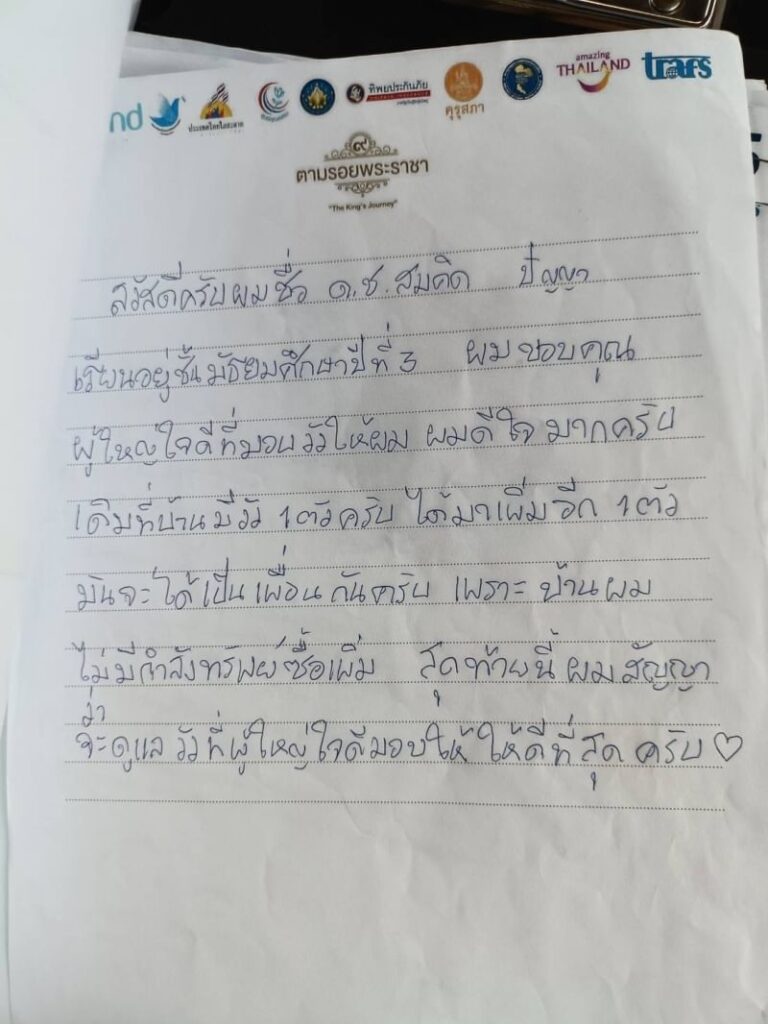 nd
ประเทศไทยใสสะอาด
ทิพยประกันภัย
คุรุสภา
amazing
THAILAND
trafs
๙
ตามรอยพระราชา
"The King's Journey"
สวัสดีครับผมชื่อ ด.ช. สมคิด ปัญญา
เรียนอยู่ชั้นมัธยมศึกษาปีที่ 3 ผมขอบคุณ
ผู้ใหญ่ใจดีที่มอบวัวให้ผม ผมดีใจมากครับ
เดิมที่บ้านมีวัว 1 ตัวครับ ได้มาเพิ่มอีก 1 ตัว
มันจะได้เป็นเพื่อนกันครับ เพราะบ้านผม
ไม่มีกำลังทรัพย์ซื้อเพิ่ม สุดท้ายนี้ผมสัญญา
ว่า
จะดูแลวัวที่ผู้ใหญ่ใจดีมอบให้ ให้ดีที่สุดครับ♡